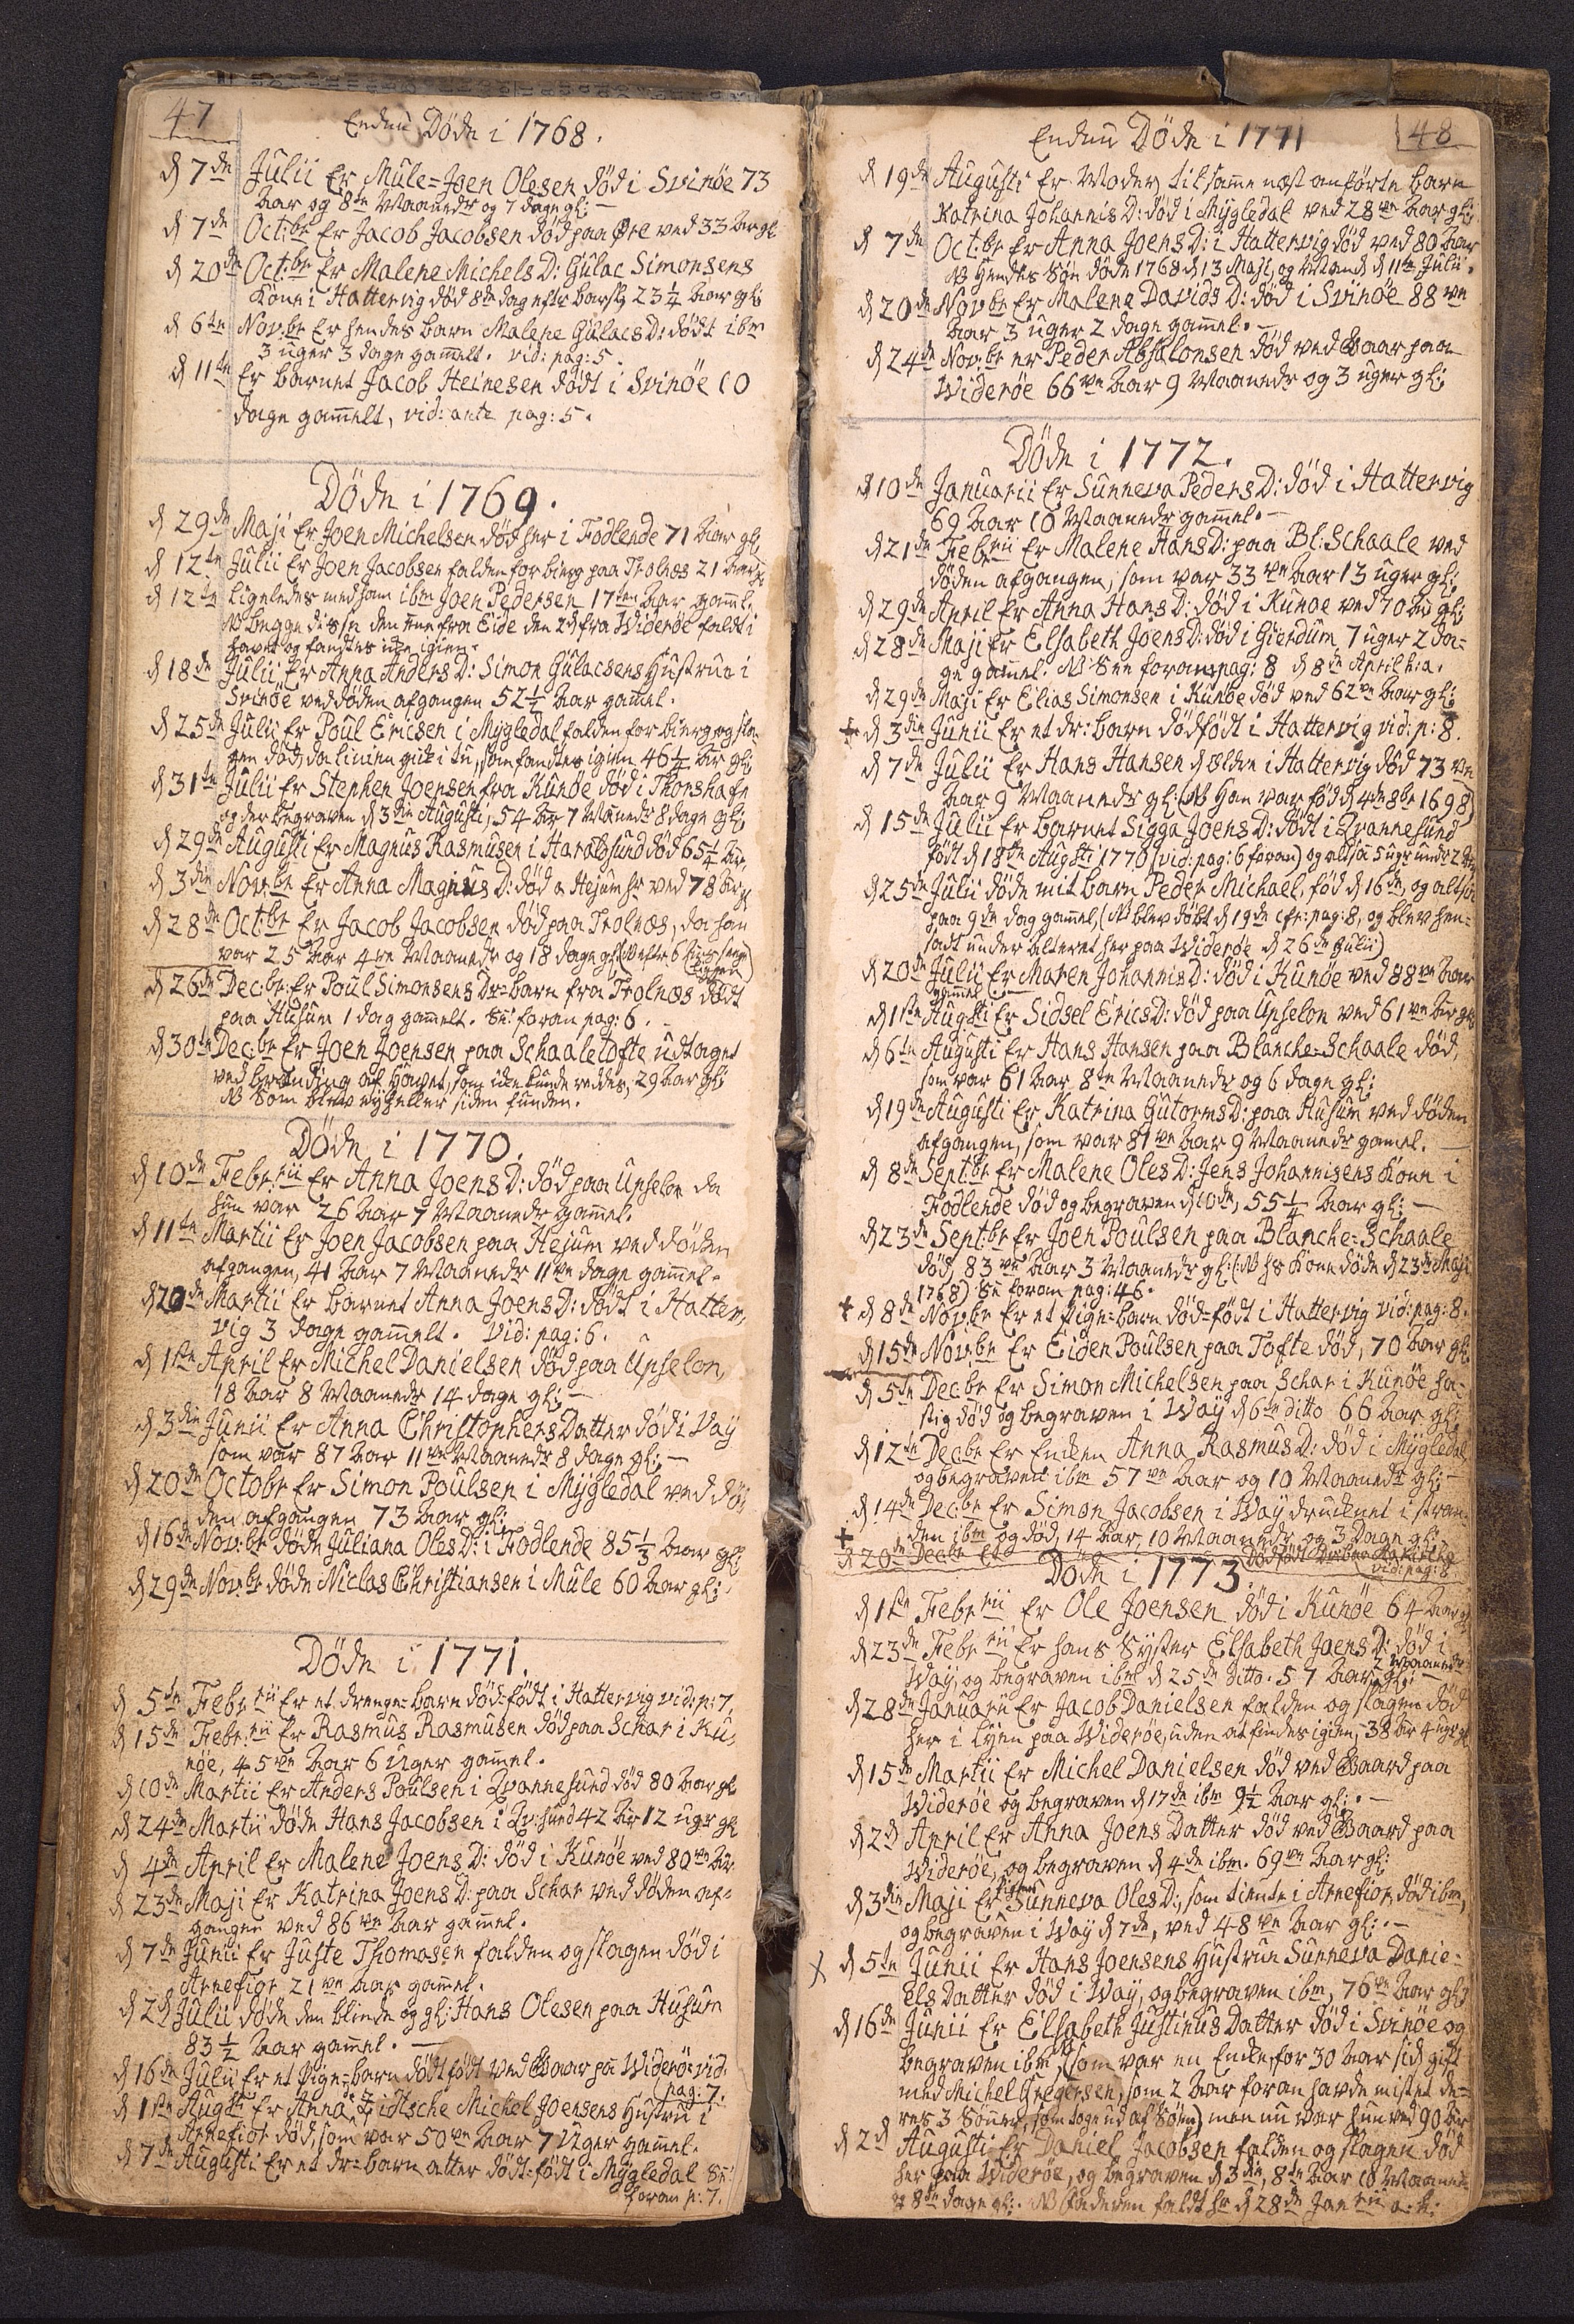 47
Endnu Döde i 1768.
d 7de Julii Er Mule=Joen Olesen död i Svinöe 73
Aar og 8te Maaneder og 7 dage gl:
d 7de Oct:br Er Jacob Jacobsen död paa Öre ved 33 Aar gl
d 20de Oct:br Er Malene Michels D: Gulac Simonsens
Kone i Hattervig död 8de dag efter barsel, 23 1/4 Aar gl:
d 6te Nov:br Er hendes barn Malene Gulacs D: dödt ibm
3 uger 3 dage gamelt. vid: pag: 5.
d 11te Er barnet Jacob Heinesen dödt i Svinöe 10
dage gamelt, vid: ante pag: 5.
Döde i 1769.
d 29de Maji Er Joen Michelsen död her i Fodlende 71 Aar gl
d 12te Julii Er Joen Jacobsen falden for bierg paa Trolnæs 21 Aar gl
d 12te ligeledes med ham ibm Joen Pedersen 17ten Aar gaml.
NB begge disse den Ene fra Eide den 2d fra Widerøe faldt i
havet og fandtes icke igien.
d 18de Julii Er Anna Anders D: Simon Gulacsens Hustrue i
Svinöe ved döden afgangen 52 1/2 Aar gamel.
d 25de Julii Er Poul Ericsen i Mygledal falden for bierg og sla-
gen död, da linien gick i tu, som fandtes igien 46 1/2 Aar gl:
d 31te Julii Er Stephen Joensen fra Kunöe död i Thorshafn
og der begraven d 3die Augusti, 54 Aar 7 Maaneder 8 dage gl:
d 29de Augusti Er Magnus Rasmusen i Haraldsund död 65 1/4 Aar
d 3die Nov:br Er Anna Magnus D: död a Hejum her ved 78 Aar gl
d 28de Oct:br Er Jacob Jacobsen död paa Trolnæs, da han
var 25 Aar 4re Maaneder og 18 dage gl:
d 26de Dec:br: Er Poul Simonsens Dr=barn fra Trolnæs dödt
paa Husum 1 dag gamelt. Se: foran pag: 6.
d 30te Dec:br Er Joen Joensen paa Schaaletofte udtaget
ved brending af Havet, som icke kunde reddes, 29 Aar gl:
NB Som blev ey heller siden funden.
Döde i 1770.
d 10de Feb:rii Er Anna Joens D: död paa Upselon da
hun var 26 Aar 7 Maaneder gamel.
d 11te Martii Er Joen Jacobsen paa Hejum ved döden
afgangen, 41 Aar 7 Maaneder 11ve dage gamel.
d 20de Martii Er barnet Anna Joens D: dödt i Hatter-
vig 3 dage gamelt. Vid: pag: 6.
d 1ste April Er Michel Danielsen död paa Upselon,
18 Aar 8 Maaneder 14 dage gl:
d 3die Junii Er Anna Christophers Datter död i Vaÿ
som var 87 Aar 11ve Maaneder 8 dage gl:
d 20de Octobr Er Simon Poulsen i Mygledal ved dö-
den afgangen 73 Aar gl:
d 16de Nov:br döde Juliana Oles D: i Fodlende 85 1/3 Aar gl:
d 29de Nov:br döde Niclas Christiansen i Mule 60 Aar gl:
Döde i 1771.
d 5te Feb:rii Er et drenge=barn död=födt i Hattervig vid: p: 7.
d 15de Feb:rii Er Rasmus Rasmusen död paa Schar i Ku-
nöe, 45ve Aar 6 Uger gamel.
d 10de Martii Er Anders Poulsen i Qvannesund död 80 Aar gl
d 24de Martii döde Hans Jacobsen i Qv:sund 42 Aar 12 uger gl
d 4de April Er Malene Joens D: död i Kunöe ved 80ve Aar
d 23de Maji Er Katrina Joens D: paa Schar ved döden af-
gangen ved 86ve Aar gamel.
d 7de Junii Er Juste Thomasen falden og slagen död i
Arnefior 21ve Aar gamel.
d 2d Julii döde den blinde og gl: Hans Olesen paa Husum
83 1/2 Aar gamel.
d 16de Julii Er et Pige=barn dödt födt ved Gaar paa Widerøe vid.
pag: 7.
d 1ste Aug:sti Er Anna Michel Joensens Hustru i
Arnefior död, som var 50ve Aar 7 Uger gamel.
d 7de Augusti Er et dr=barn atter dödt=födt i Mygledal Se:
foran p: 7.
48
Endnu Döde i 1771
d 19de Augusti Er Moder til same næst anförte barn
Katrina Johannis D: död i Mygledal ved 28ve Aar gl:
d 7de Oct:br Er Anna Joens D: i Hattervig död ved 80 Aar
NB Hendes Sön döde 1768 d 13 Maji, og Mand d 11te Julii.
d 20de Nov:br Er Malene Davids D: död i Svinöe 88ve
Aar 3 uger 2 dage gamel.
d 24de Nov:br er Peder Absalonsen död ved Gaar paa
Widerøe 66ve Aar 9 Maaneder og 3 uger gl:
Döde i 1772.
d 10de Januarii Er Sunneva Peders D: död i Hattervig
69 Aar 10 Maaneder gamel.
d 21de Feb:rii Er Malene Hans D: paa Bl: Schaale ved
döden afgangen, som var 33ve Aar 13 uger gl:
d 29de April Er Anna Hans D: död i Kunoe ved 70 Aar gl:
d 28de Maji Er Elsabeth Joens D: död i Gierdum 7 uger 2 da-
ge gamel. NB See foran pag: 8 d 8de April h: a.
d 29de Maji Er Elias Simonsen i Kunöe död ved 62ve Aar gl:
+ d 3die Junii Er et dr: barn dödfödt i Hattervig vid: p: 8.
d 7de Julii Er Hans Hansen d ældre i Hattervig död 73ve
Aar 9 Maaneder gl: (NB Han var föd d 4de 8br 1698)
d 15de Julii Er barnet Sigga Joens D: dödt i Qvannesund
födt d 18de Aug:sti 1770 (vid: pag: 6 foran) og altsaa 5 uger under 2 Aar
d 25de Julii döde mit barn Peder Michael, föd d 16de, og altsaa
paa 9de dag gamel, (NB blev döbt d 19de cfr: pag: 8, og blev hen-
sadt under alteret her paa Widerøe d 26de Julii)
d 20de Julii Er Maren Johannis D: död i Kunöe ved 88ve Aar
gamel.
d 1ste Aug:sti Er Sidsel Erics D: död paa Upselon ved 61ve Aar gl:
d 6te Augusti Er Hans Hansen paa Blanche=Schaale död,
som var 61 Aar 8te Maaneder og 6 dage gl:
d 19de Augusti Er Katrina Gutorms D: paa Husum ved döden
afgangen, som var 81ve Aar 9 Maaneder gamel.
d 8de Sept:br Er Malene Oles D: Jens Johannisens Kone i
Fodlende död og begraven d 10de, 55 1/4 Aar gl:
d 23de Sept:br Er Joen Poulsen paa Blanche=Schaale
död, 83ve Aar 3 Maaneder gl: (NB hs Kone döde d 23de Maji
1768) Se foran pag: 46.
+ d 8de Nov:br Er et Pige=barn död=födt i Hattervig vid: pag: 8.
d 15de Nov:br Er Eiden Poulsen paa Tofte död, 70 Aar gl:
d 5te Dec:br Er Simon Michelsen paa Schar i Kunöe ha-
stig död og begraven i Waÿ d 6te ditto 66 Aar gl:
d 12te Dec:br Er Encken Anna Rasmus D: död i Mygledal
og begraven ibm 57ve Aar og 10 Maaneder gl:
d 14de Dec:br Er Simon Jacobsen i Way drucknet i stran-
den ibm og död, 14 Aar, 10 Maaneder og 3 Dage gl:
+ d 20de Dec:br Er dödfödt Dr:barn
vid: pag: 8
Döde i 1773.
d 1ste Feb:rii Er Ole Joensen död i Kunöe 64 Aar gl
d 23de Feb:rii Er hans Syster Elsabeth Joens D: död i
Way, og begraven ibm d 25de ditto. 57 Aar 2 Maaneder gl:
d 28de Januarii Er Jacob Danielsen falden og slagen död
her i Lÿen paa Widerøe, uden at findes igien, 38 Aar 4 uger gl
d 15de Martii Er Michel Danielsen död ved Gaard paa
Widerøe og begraven d 17de ibm 9 1/2 Aar gl:
d 2d April Er Anna Joens Datter död ved Gaard paa
Widerøe, og begraven d 4de ibm. 69ve Aar gl:
d 3die Maji Er Sunneva Oles D:, som tiente i Arnefior, död ibm,
og begraven i Way d 7de, ved 48ve Aar gl:
d 5te Junii Er Hans Joensens Hustrue Sunneva Danie-
els Datter död i Way, og begraven ibm, 76ve Aar gl:
d 16de Junii Er Elsabeth Justinus Datter död i Svinöe og
begraven ibm, (som var en Encke, for 30 Aar sid gift
med Michel Gregersen, som 2 Aar foran havde mistet de-
res 3 Sönner, som toge ud af Söen) men nu var hun ved 90 Aar
d 2d Augusti Er Daniel Jacobsen falden og slagen död
her paa Widerøe, og begraven d 3die, 8te Aar 10 Maaneder
8te dage gl: NB Faderen faldt her d 28de Jan:rii a: h: